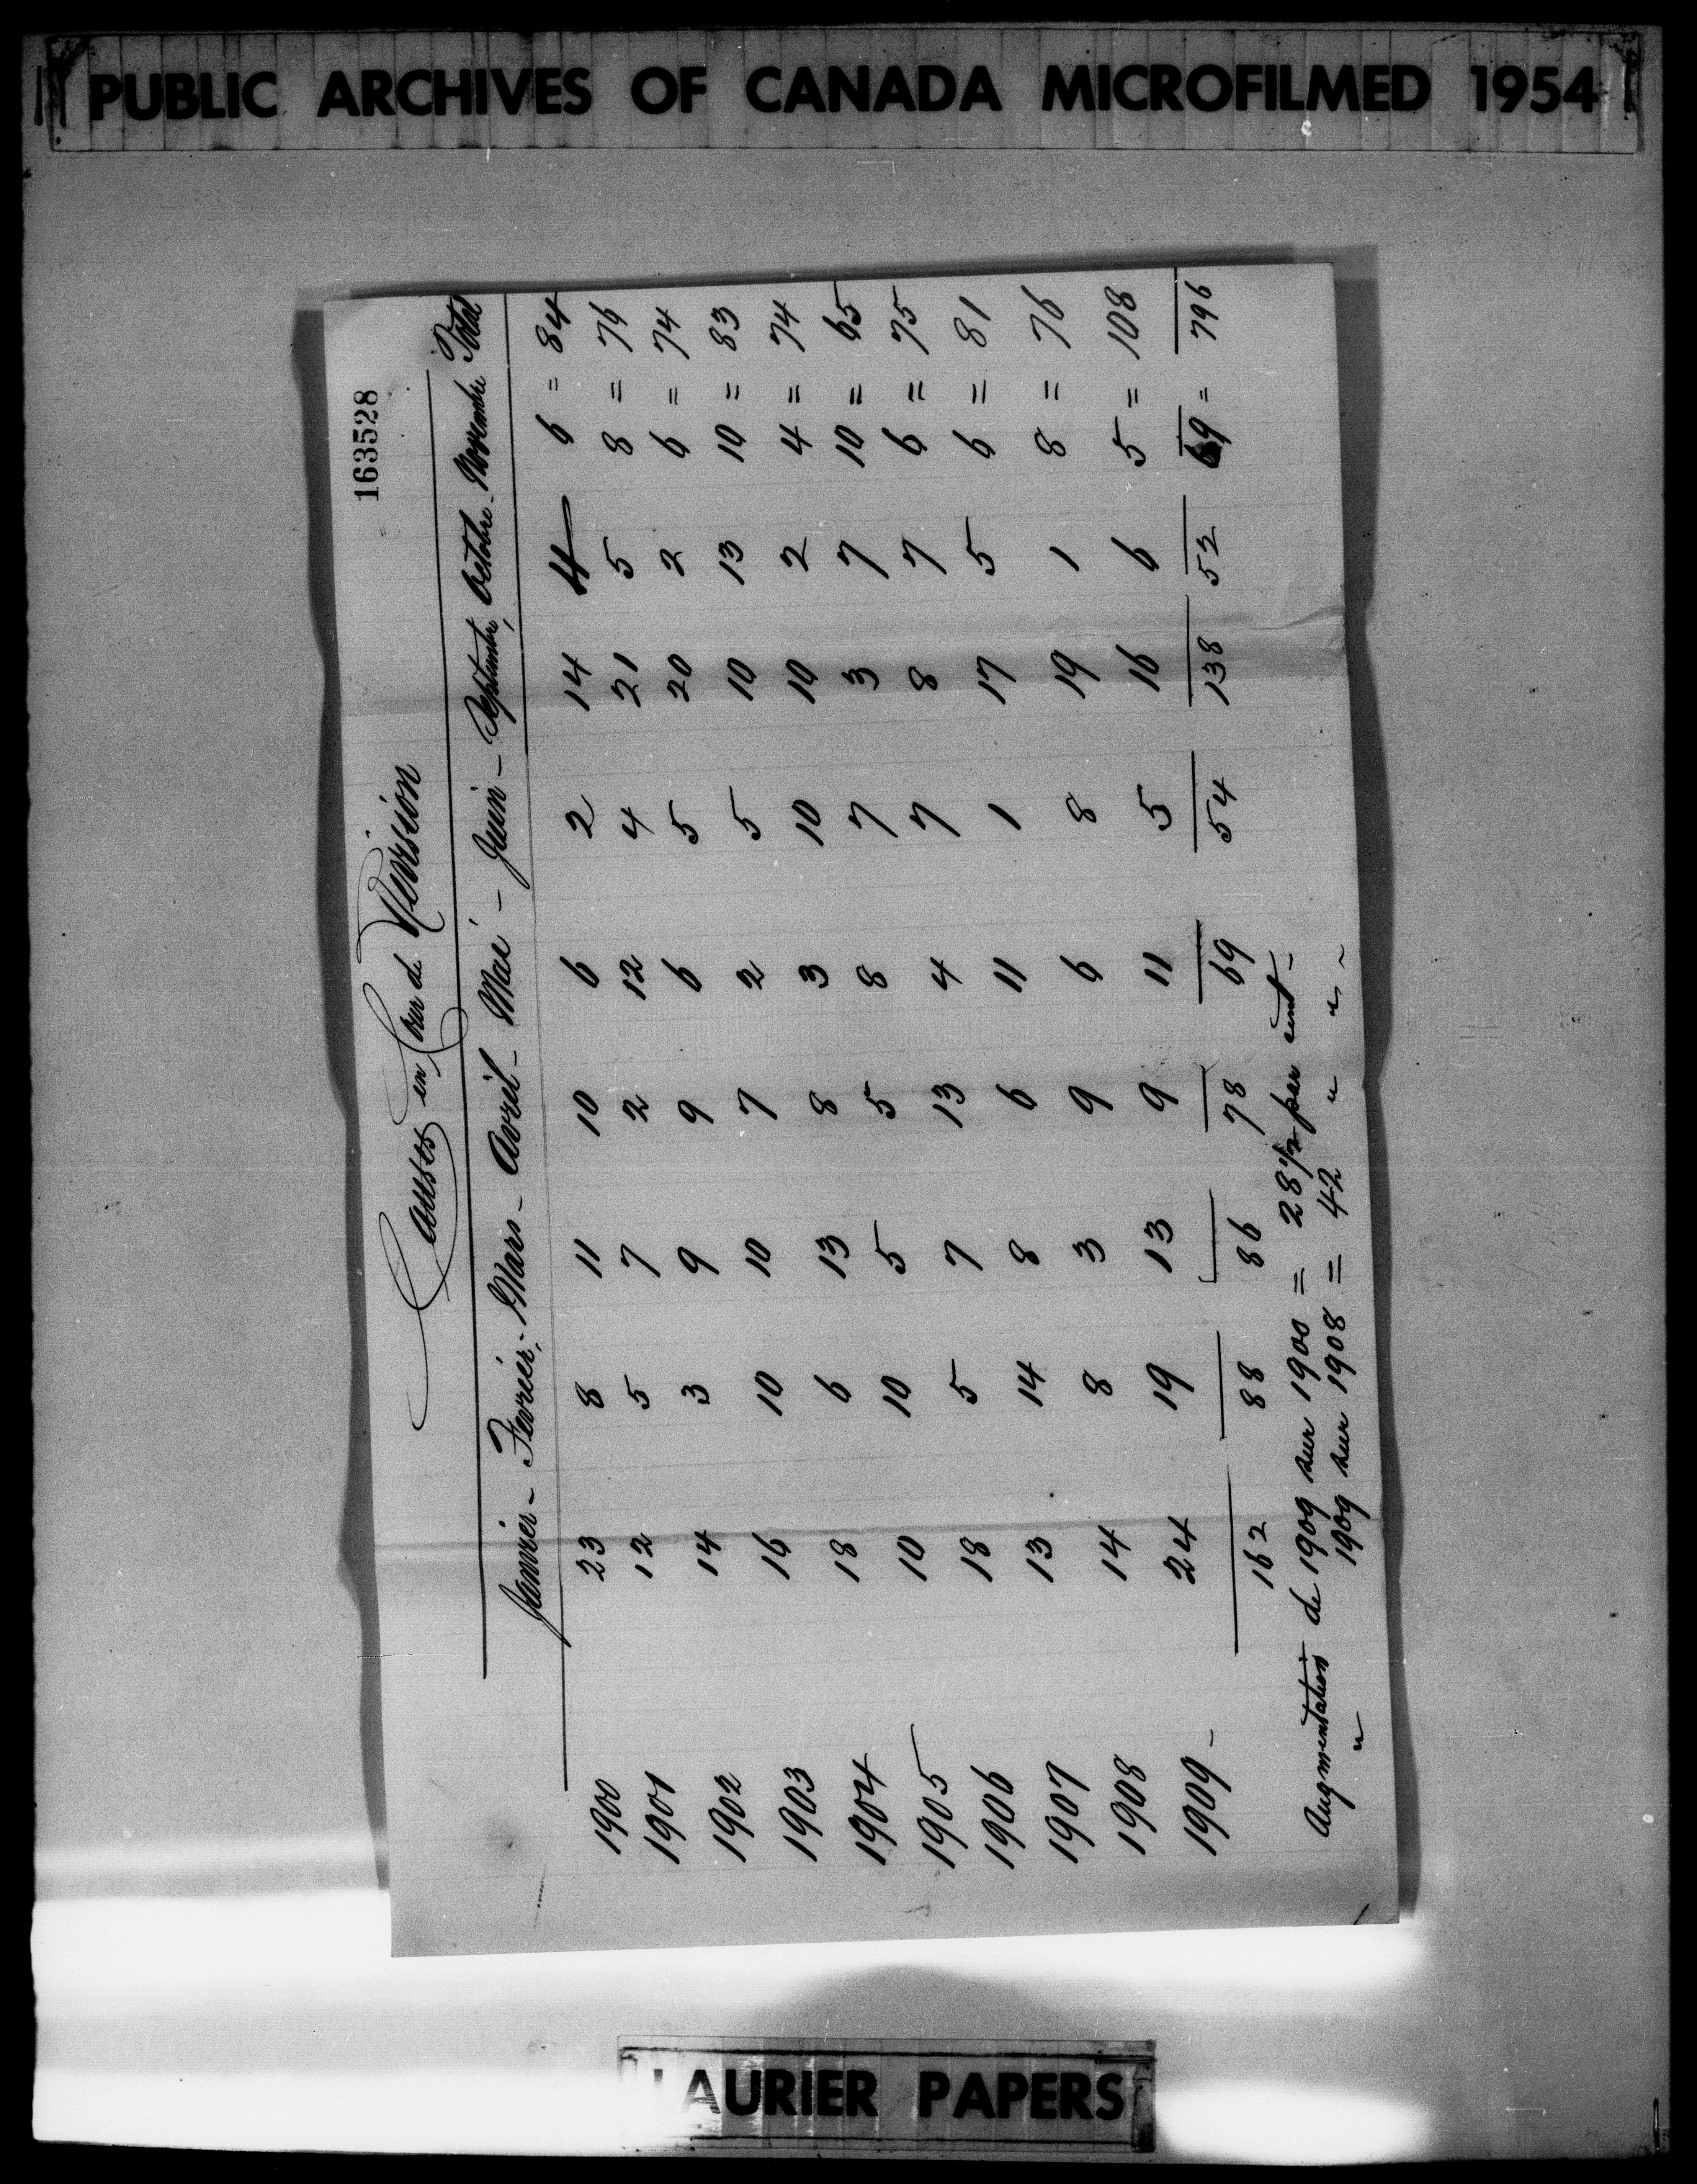 PUBLIC ARCHIVES OF CANADA MICROFILMED 1954
163528
Causes en Cour de Révision
Janvier - Fevrier - Mars - Avril - Mai - Juin - Septembre, Octobre - Novembre Total
1900 23 8 11 10 6 2 14 4 6 = 84
1901 12 5 7 2 12 4 21 5 8 = 76
1902 14 3 9 9 6 5 20 2 6 = 74
1903 16 10 10 7 2 5 10 13 10 = 83
1904 18 6 13 8 3 10 10 2 4 = 74
1905 10 10 5 5 8 7 3 7 10 = 65
1906 18 5 7 13 4 7 8 7 6 = 75
1907 13 14 8 6 11 1 17 5 6 = 81
1908 14 8 3 9 6 8 19 1 8 = 76
1909 - 24 19 13 9 11 5 16 6 5 = 108
162 88 86 78 69 54 138 52 69 = 796
Augmentation de 1909 sur 1900 = 28 1/2 per cent -
" 1909 sur 1908 = 42 " " "
LAURIER PAPERS